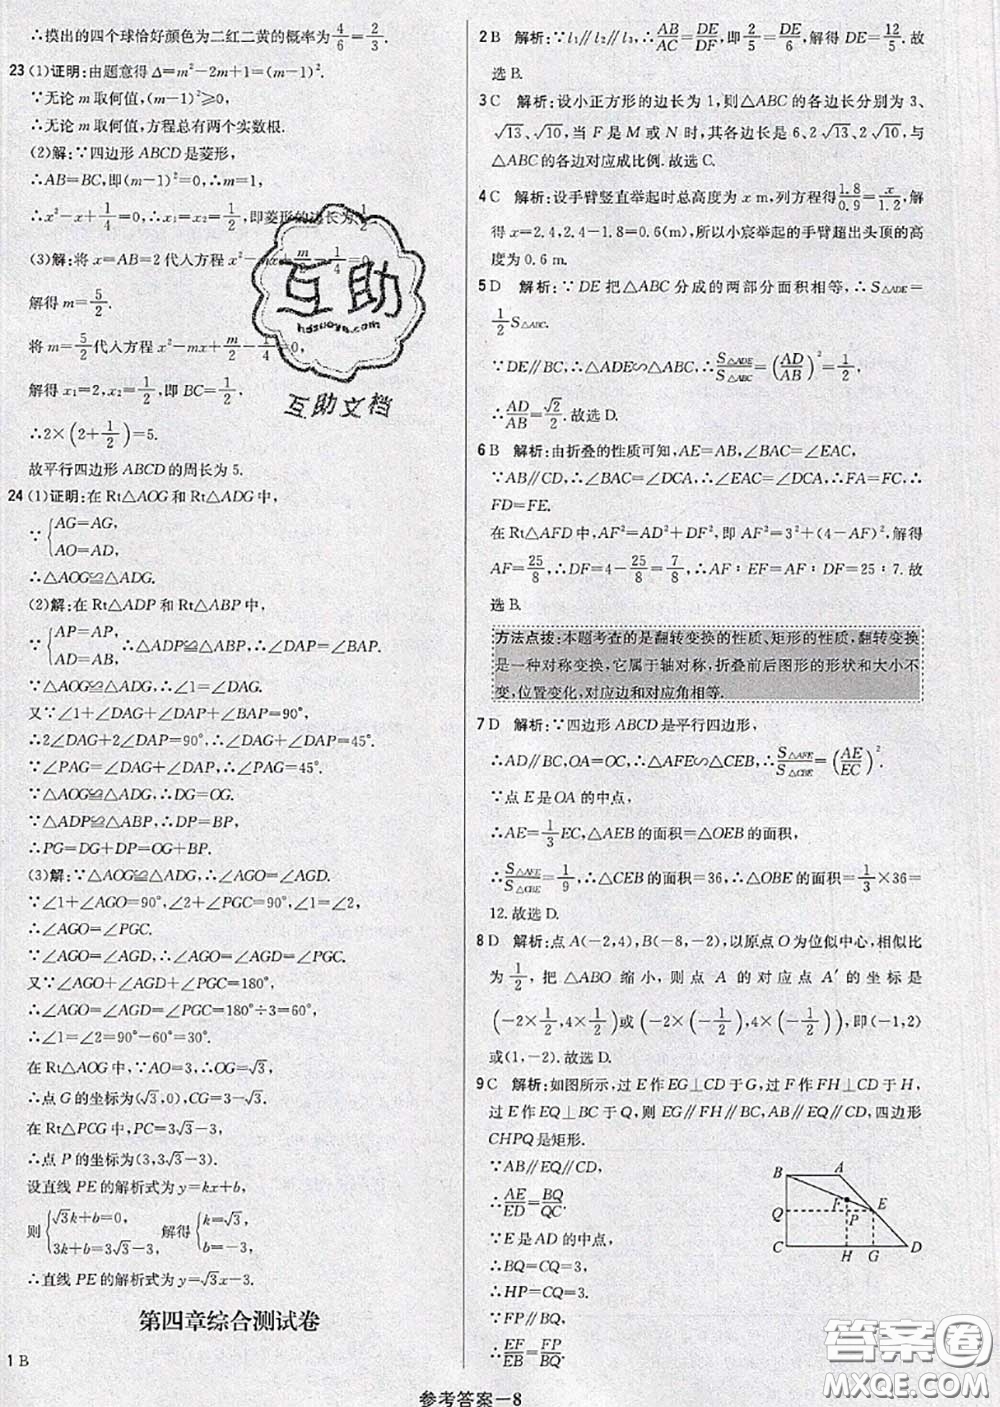 ∴摸出的四个球恰好颜色为二红二黄的概率为4/6=2/3.
23 (1)证明:由题意得Δ=m²-2m+1=(m-1)².
∵无论m取何值,(m-1)²⩾0,
∴无论m取何值,方程总有两个实数根.
(2)解:∵四边形ABCD是菱形,
∴AB=BC,即(m-1)²=0,∴m=1,
∴x²-x+1/4=0,∴x₁=x₂=1/2,即菱形的边长为1/2.
(3)解:将x=AB=2代入方程x²-mx+m/2-1/4=0,
解得m=5/2.
将m=5/2代入方程x²-mx+m/2-1/4=0,
解得x₁=2,x₂=1/2,即BC=1/2,
∴2×(2+1/2)=5.
故平行四边形ABCD的周长为5.
24 (1)证明:在Rt△AOG和Rt△ADG中,
∵{AG=AG,
AO=AD,
∴△AOG≌△ADG.
(2)解:在Rt△ADP和Rt△ABP中,
∵{AP=AP,
AD=AB,
∴△ADP≌△ABP,∴∠1=∠DAG.
又∵∠1+∠DAG+∠DAP+∠BAP=90°,
∴2∠DAG+2∠DAP=90°,∴∠DAG+∠DAP=45°.
∵∠PAG=∠DAG+∠DAP,∴∠PAG=45°.
∵△AOG≌△ADG,∴DG=OG.
∵△ADP≌△ABP,∴DP=BP,
∴PG=DG+DP=OG+BP.
(3)解:∵△AOG≌△ADG,∴∠AGO=∠AGD.
∵∠1+∠AGO=90°,∠2+∠PGC=90°,∠1=∠2,
∴∠AGO=∠PGC.
又∵∠AGO+∠AGD+∠PGC=180°,
∴∠AGO=∠AGD=∠PGC=180°÷3=60°,
∴∠1=∠2=90°-60°=30°.
在Rt△AOG中,∵AO=3,∴OG=√3,
∴点G的坐标为(√3,0),CG=3-√3.
在Rt△PCG中,PC=3√3-3,
∴点P的坐标为(3,3√3-3).
设直线PE的解析式为y=kx+b,
则{√3k+b=0, 解得{k=√3,
3k+b=3√3-3, b=-3,
∴直线PE的解析式为y=√3x-3.
第四章综合测试卷
1 B
2 B 解析:∵l₁∥l₂∥l₃,∴AB/AC=DE/DF,即2/5=DE/6,解得DE=12/5.故
选B.
3 C 解析:设小正方形的边长为1,则△ABC的各边长分别为3、
√13、√10,当F是M或N时,其各边长是6、2√13、2√10,与
△ABC的各边对应成比例.故选C.
4 C 解析:设手臂竖直举起时总高度为x m,列方程得1.8/0.9=x/1.2,解
得x=2.4,2.4-1.8=0.6(m),所以小宸举起的手臂超出头顶的高
度为0.6 m.
5 D 解析:∵DE把△ABC分成的两部分面积相等,∴S△ADE=
1/2S△ABC.
∵DE∥BC,∴△ADE∽△ABC,∴S△ADE/S△ABC=(AD/AB)²=1/2,
∴AD/AB=√2/2.故选D.
6 B 解析:由折叠的性质可知,AE=AB,∠BAC=∠EAC,
∵AB∥CD,∴∠BAC=∠DCA,∴∠EAC=∠DCA,∴FA=FC,
∴FD=FE.
在Rt△AFD中,AF²=AD²+DF²,即AF²=3²+(4-AF)²,解得
AF=25/8,∴DF=4-25/8=7/8,∴AF∶EF=AF∶DF=25∶7.故
选B.
方法点拨:本题考查的是翻转变换的性质、矩形的性质,翻转变换
是一种对称变换,它属于轴对称,折叠前后图形的形状和大小不
变,位置变化,对应边和对应角相等.
7 D 解析:∵四边形ABCD是平行四边形,
∴AD∥BC,OA=OC,∴△AFE∽△CEB,∴S△AFE/S△CBE=(AE/EC)².
∵点E是OA的中点,
∴AE=1/3EC,△AEB的面积=△OEB的面积,
∴S△AFE/S△CBE=1/9,∴△CEB的面积=36,∴△OBE的面积=1/3×36=
12.故选D.
8 D 解析:点A(-2,4),B(-8,-2),以原点O为位似中心,相似比
为1/2,把△ABO缩小,则点A的对应点A′的坐标是
(-2×1/2,4×1/2)或(-2×(-1/2),4×(-1/2)),即(-1,2)
或(1,-2).故选D.
9 C 解析:如图所示,过E作EG⊥CD于G,过F作FH⊥CD于H,
过E作EQ⊥BC于Q,则EG∥FH∥BC,AB∥EQ∥CD,四边形
CHPQ是矩形.
∵AB∥EQ∥CD,
∴AE/ED=BQ/QC.
∵E是AD的中点,
∴BQ=CQ=3,
∴HP=CQ=3.
∵FP∥BQ,
∴EF/EB=FP/BQ.
B A
F
Q P E
C H G D
互助
hdzuoye.com
互助文档
答案圈
MXQE.COM
参考答案—8